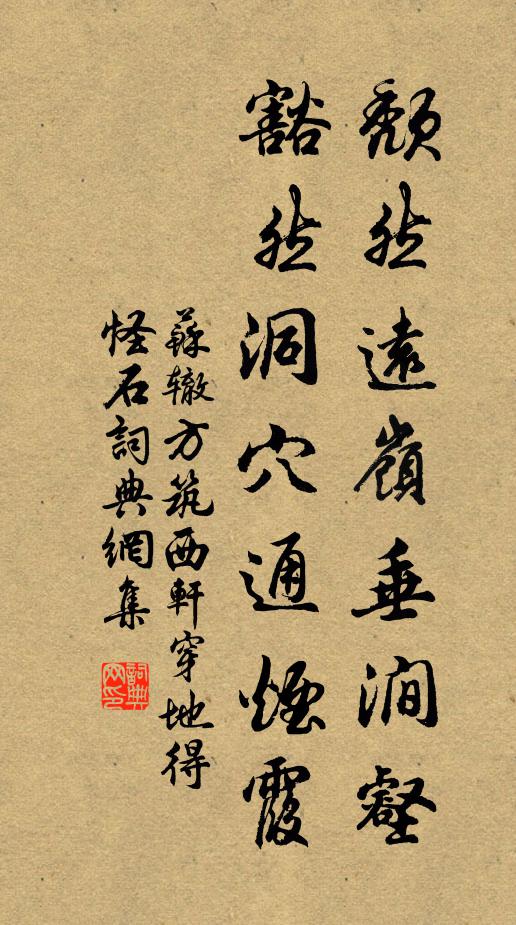 頹然遠嶺垂澗壑
豁然洞穴通煙霞
蘇辙方筑西軒穿地得
怪石詞典網集
詞典網印